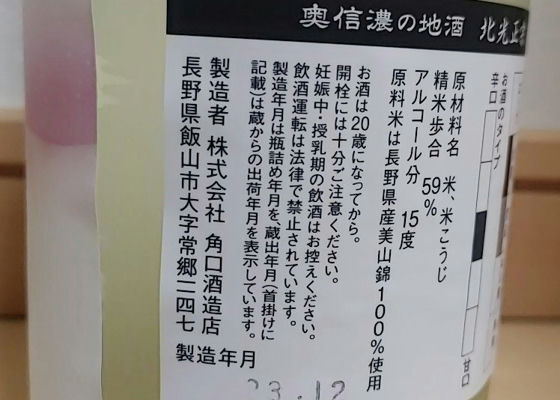 奥信濃の地酒 北光正宗
お酒のタイプ
辛口
甘口
原材料名 米、米こうじ
精米歩合 59%
アルコール分 15度
原料米は長野県産美山錦100%使用
お酒は20歳になってから。
開栓には十分ご注意ください。
妊娠中・授乳期の飲酒はお控えください。
飲酒運転は法律で禁止されています。
製造年月は瓶詰め年月を、蔵出年月(首掛けに
記載)は蔵からの出荷年月を表示しています。
製造者 株式会社 角口酒造店
長野県飯山市大字常郷一四七
製造年月
23.12